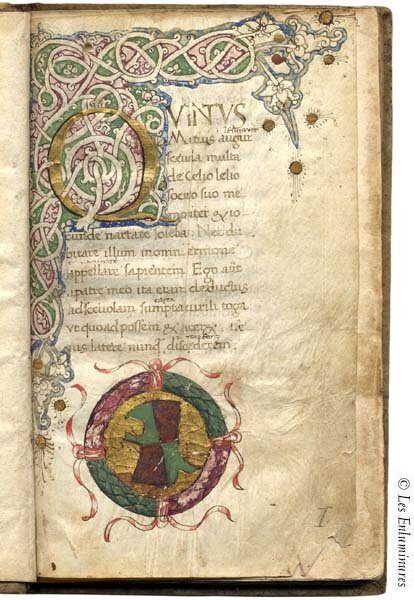 QVINTVS
Mutius augur
sceuola multa
de Celio lelio
socero suo me
moriter & io
cunde narrare solebat Nec du
bitare illum in omni
appellare sapientem. Ego aut
patre meo ita eram deductus
ad sceuolam sumpta uirili toga
vt quo ad possem &
latere nunq discederem.
I
© Les Enluminures